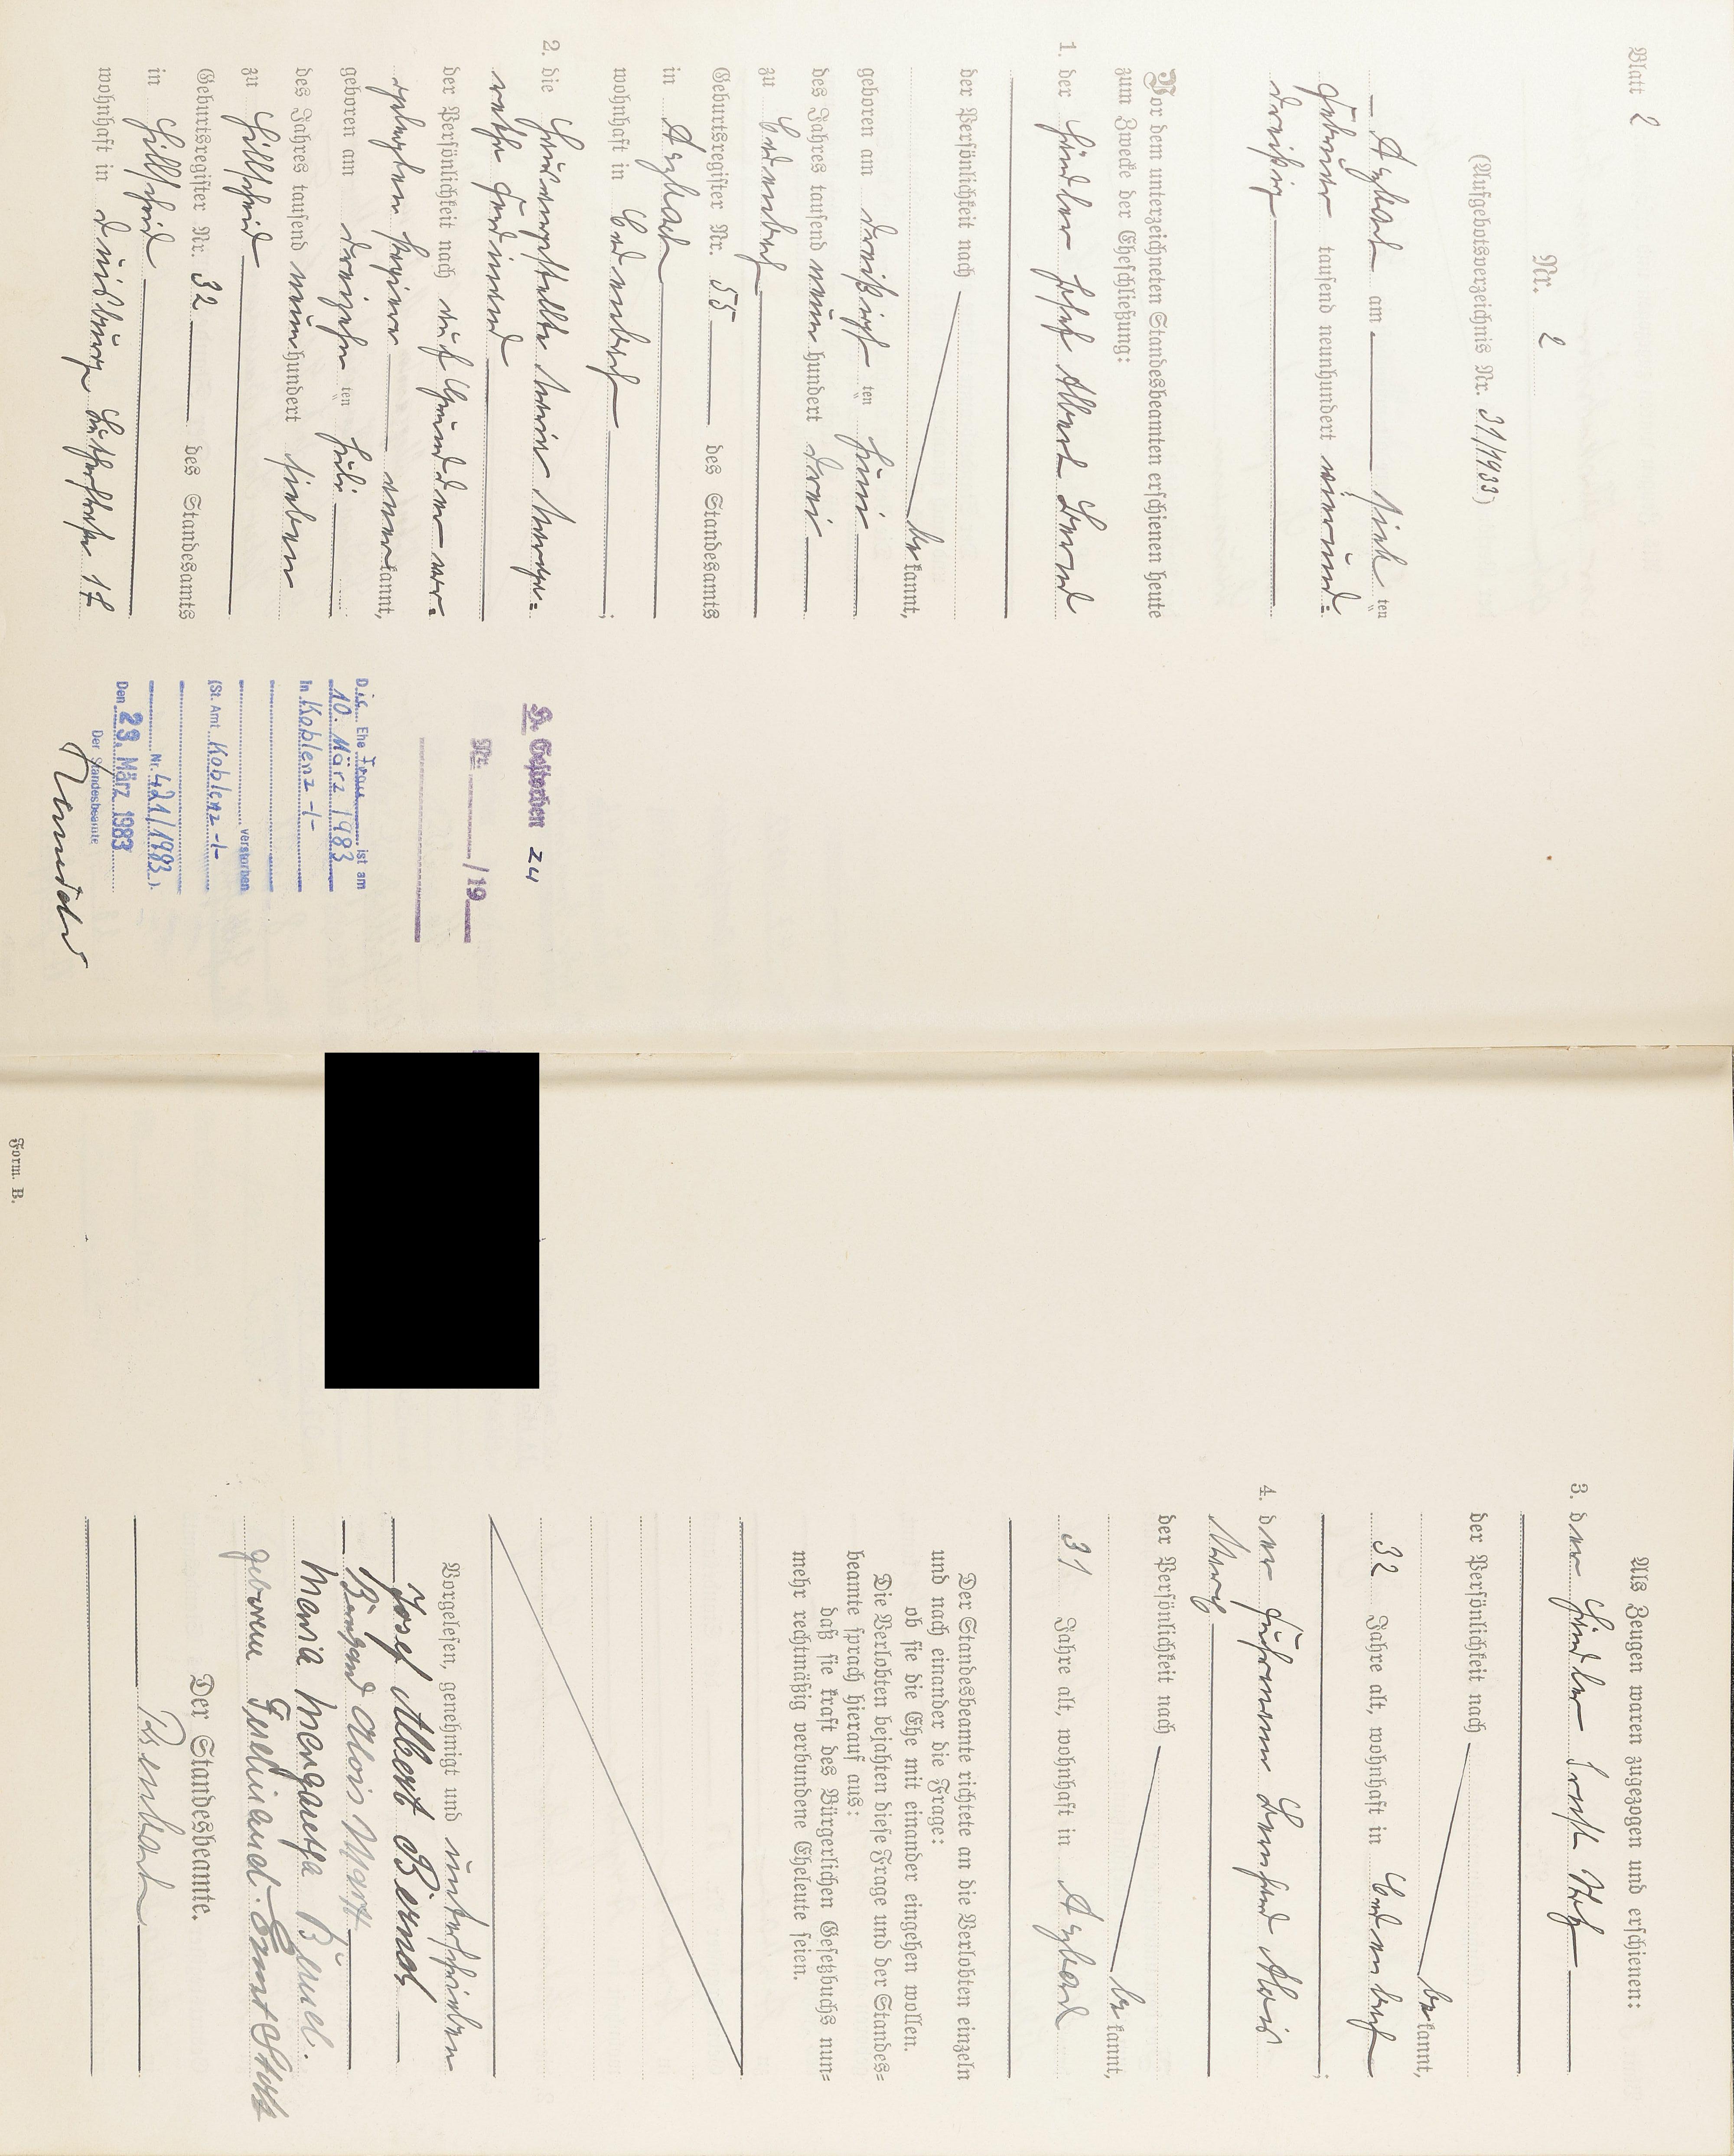 Blatt 2
Nr. 2
(Aufgebotsverzeichnis Nr. 31/1933)
— Asbach am — vier ten
Februar tausend neunhundert vierund=
dreißig
Vor dem unterzeichneten Standesbeamten erschienen heute
zum Zwecke der Eheschließung:
1. der Händler Josef Albert Bernd
der Persönlichkeit nach
be kannt,
geboren am dreißigst ten Juni
des Jahres tausend neun hundert drei
zu Bedenbach
Geburtsregister Nr. 55 des Standesamts
in Asbach
wohnhaft in Bedenbach ;
2. die Hausangestellte Maria Marga=
retha Ferdinand
der Persönlichkeit nach auf Grund der vor=
gelegten Papiere aner kannt,
geboren am dreizehn ten Juli
des Jahres tausend neun hundert sieben
zu Hillscheid
Geburtsregister Nr. 32 des Standesamts
in Hillscheid
wohnhaft in Duisburg, 17
Gestorben 24
Nr. /19
Die Ehe Frau ist am
10. März 1983
in Koblenz -/-
verstorben
(St. Amt Koblenz -/-
Nr. 421/1983).
Den 29. März 1983
Der Standesbeamte
Als Zeugen waren zugezogen und erschienen:
3. der Händler Ernst
der Persönlichkeit nach
be kannt,
32 Jahre alt, wohnhaft in Bedenbach ;
4. der Fuhrmann Bernhard Alois
der Persönlichkeit nach
be kannt,
31 Jahre alt, wohnhaft in Asbach
Der Standesbeamte richtete an die Verlobten einzeln
und nach einander die Frage:
ob sie die Ehe mit einander eingehen wollen.
Die Verlobten bejahten diese Frage und der Standes=
beamte sprach hierauf aus:
daß sie kraft des Bürgerlichen Gesetzbuchs nun=
mehr rechtmäßig verbundene Eheleute seien.
Vorgelesen, genehmigt und unterschrieben
Josef Albert Bernd
Alois
Maria Margaretha Bernd.
geborene Ferdinand. Ernst
Der Standesbeamte.
Form. B.